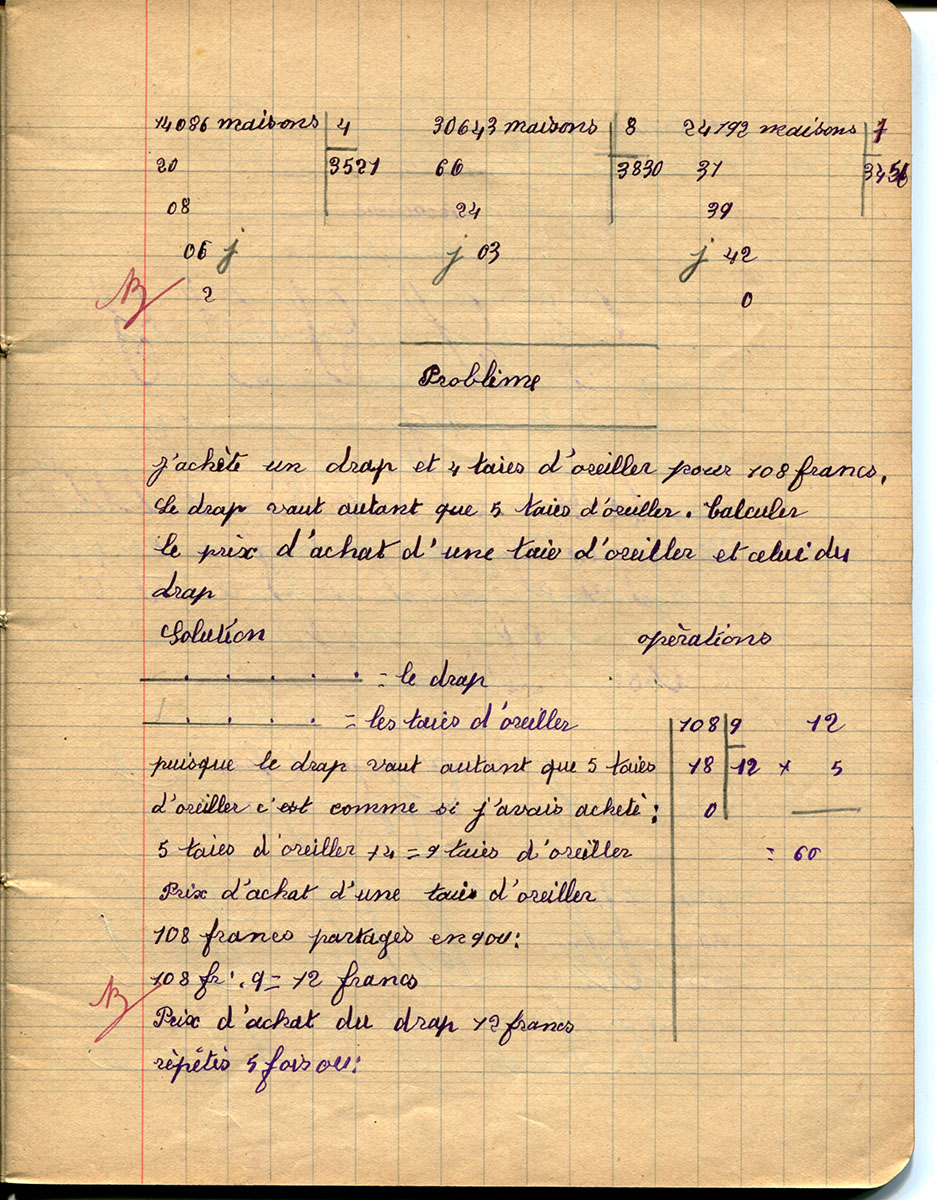 14086 maisons 4 30643 maisons 8 24192 maisons 7
20 3521 66 3830 31 3456
08 24 39
06 j j 03 j 42
B 2 0
Problème
j'achète un drap et 4 taies d'oreiller pour 108 francs.
Le drap vaut autant que 5 taies d'oreiller. Calculer
le prix d'achat d'une taie d'oreiller et celui du
drap
Solution opèrations
. . . . . = le drap
. . . . = les taies d'oreiller 108 9 12
puisque le drap vaut autant que 5 taies 18 12 × 5
d'oreiller c'est comme si j'avais achetè: 0
5 taies d'oreiller +4 = 9 taies d'oreiller = 60
Prix d'achat d'une taie d'oreiller
108 francs partagès en 9 ou:
108 fr : 9 = 12 francs
B
Prix d'achat du drap 12 francs
rèpètès 5 fois ou: